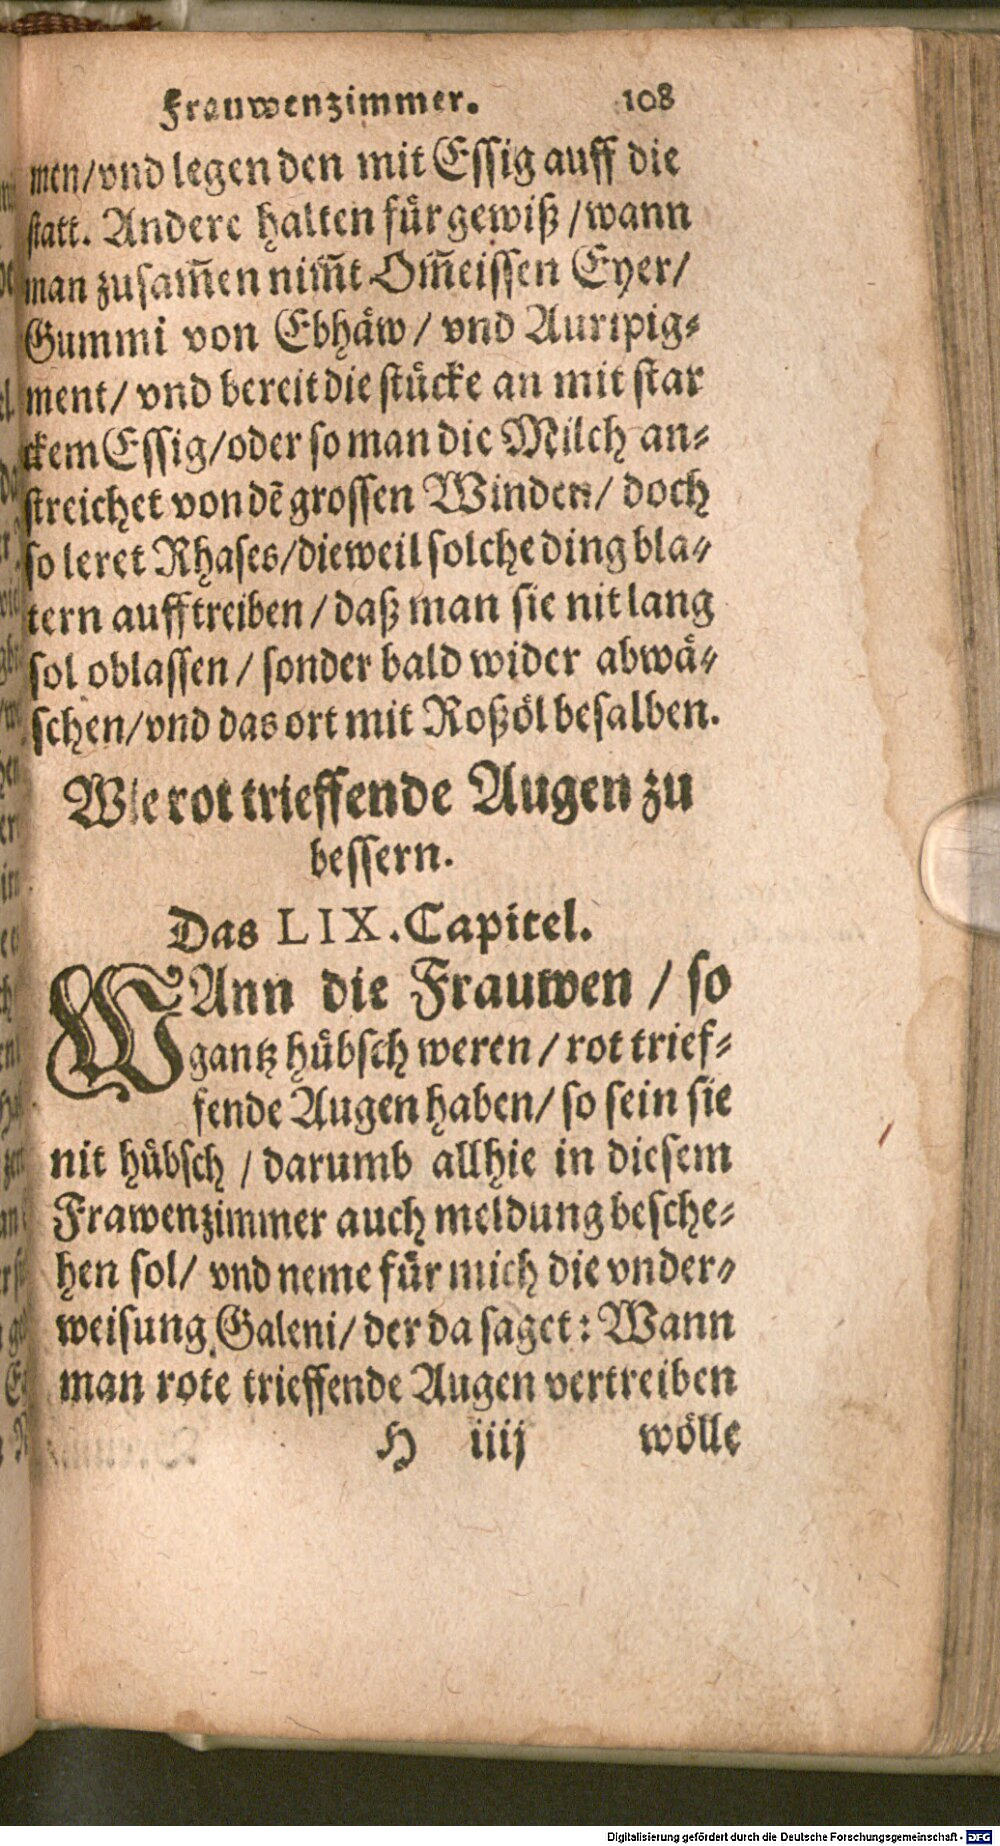 Frauwenzimmer. 108
men/vnd legen den mit Essig auff die
statt. Andere halten für gewiß/wann
man zusam̃en nim̃t Om̃eissen Eyer/
Gummi von Ebhäw/ vnd Auripig-
ment/ vnd bereit die stücke an mit star
ckem Essig/oder so man die Milch an-
streichet von dẽ grossen Winden/ doch
so leret Rhases/dieweil solche ding bla-
tern aufftreiben/daß man sie nit lang
sol oblassen/ sonder bald wider abwä-
schen/vnd das ort mit Roßöl besalben.
Wie rot trieffende Augen zu
bessern.
Das LIX. Capitel.
WAnn die Frauwen/ so
gantz hübsch weren/rot trief-
fende Augen haben/ so sein sie
nit hübsch/darumb allhie in diesem
Frawenzimmer auch meldung besche-
hen sol/ vnd neme für mich die vnder-
weisung Galeni/der da saget: Wann
man rote trieffende Augen vertreiben
H iiij wölle
Digitalisierung gefördert durch die Deutsche Forschungsgemeinschaft - DFG